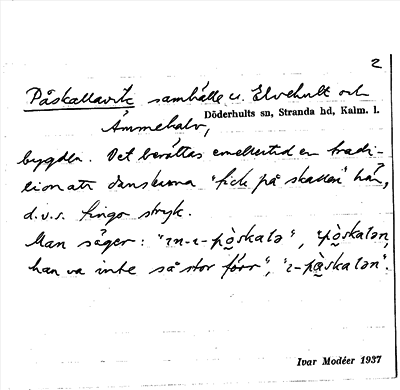 2
Påskallavik samhälle u. Elvehult och
Döderhults sn, Stranda hd, Kalm. l.
Ämmehalv,
bygden. Det berättas emellertid en tradi-
tion att danskarna "fick på skallen" här,
d.v.s. fingo stryk.
Man säger: "ɪn-ɪ-pòskalə", "pòskalən,
han va inte så stor förr", "ɪ-pòskalən".
Ivar Modéer 1937